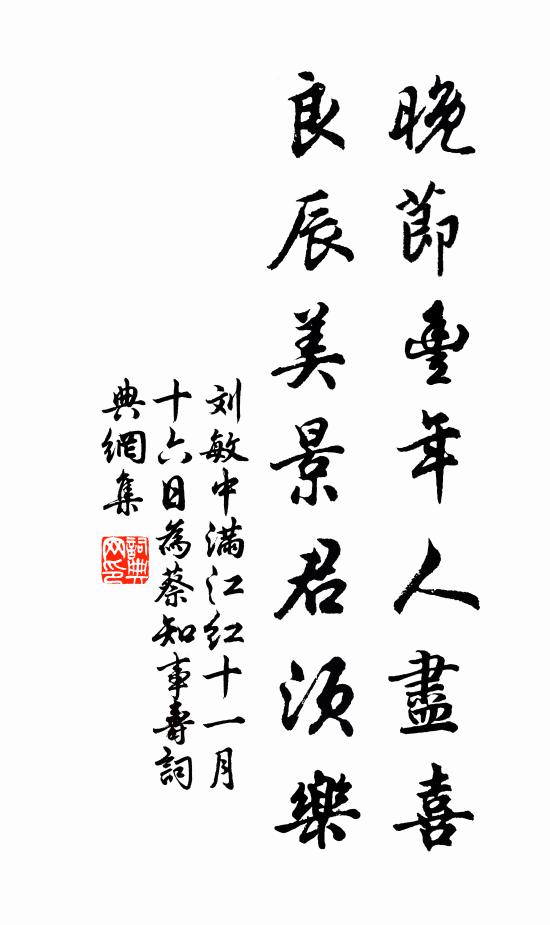 晚節豐年人盡喜
良辰美景君須樂
刘敏中滿江红十一月
十六日為蔡知事壽詞
典網集
詞典網印